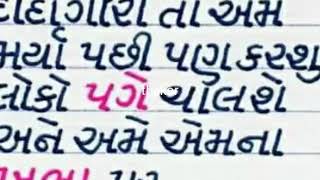 દાદાગીરી તો અમે
મર્યા પછી પણ કરશુ
લોકો પગે ચાલશે
અને અમે એમના
ખભા પર